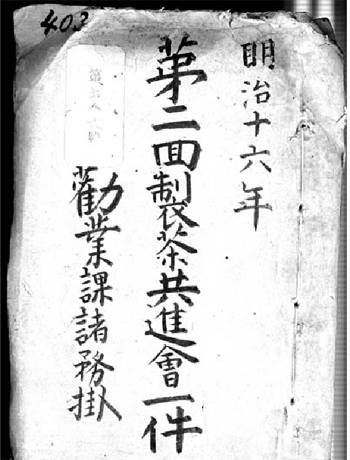 明治十六年
第二回製茶共進會一件
勸業課諸務掛
403